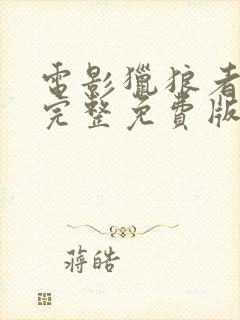 電影獵狼者
完整免費版
蔣皓